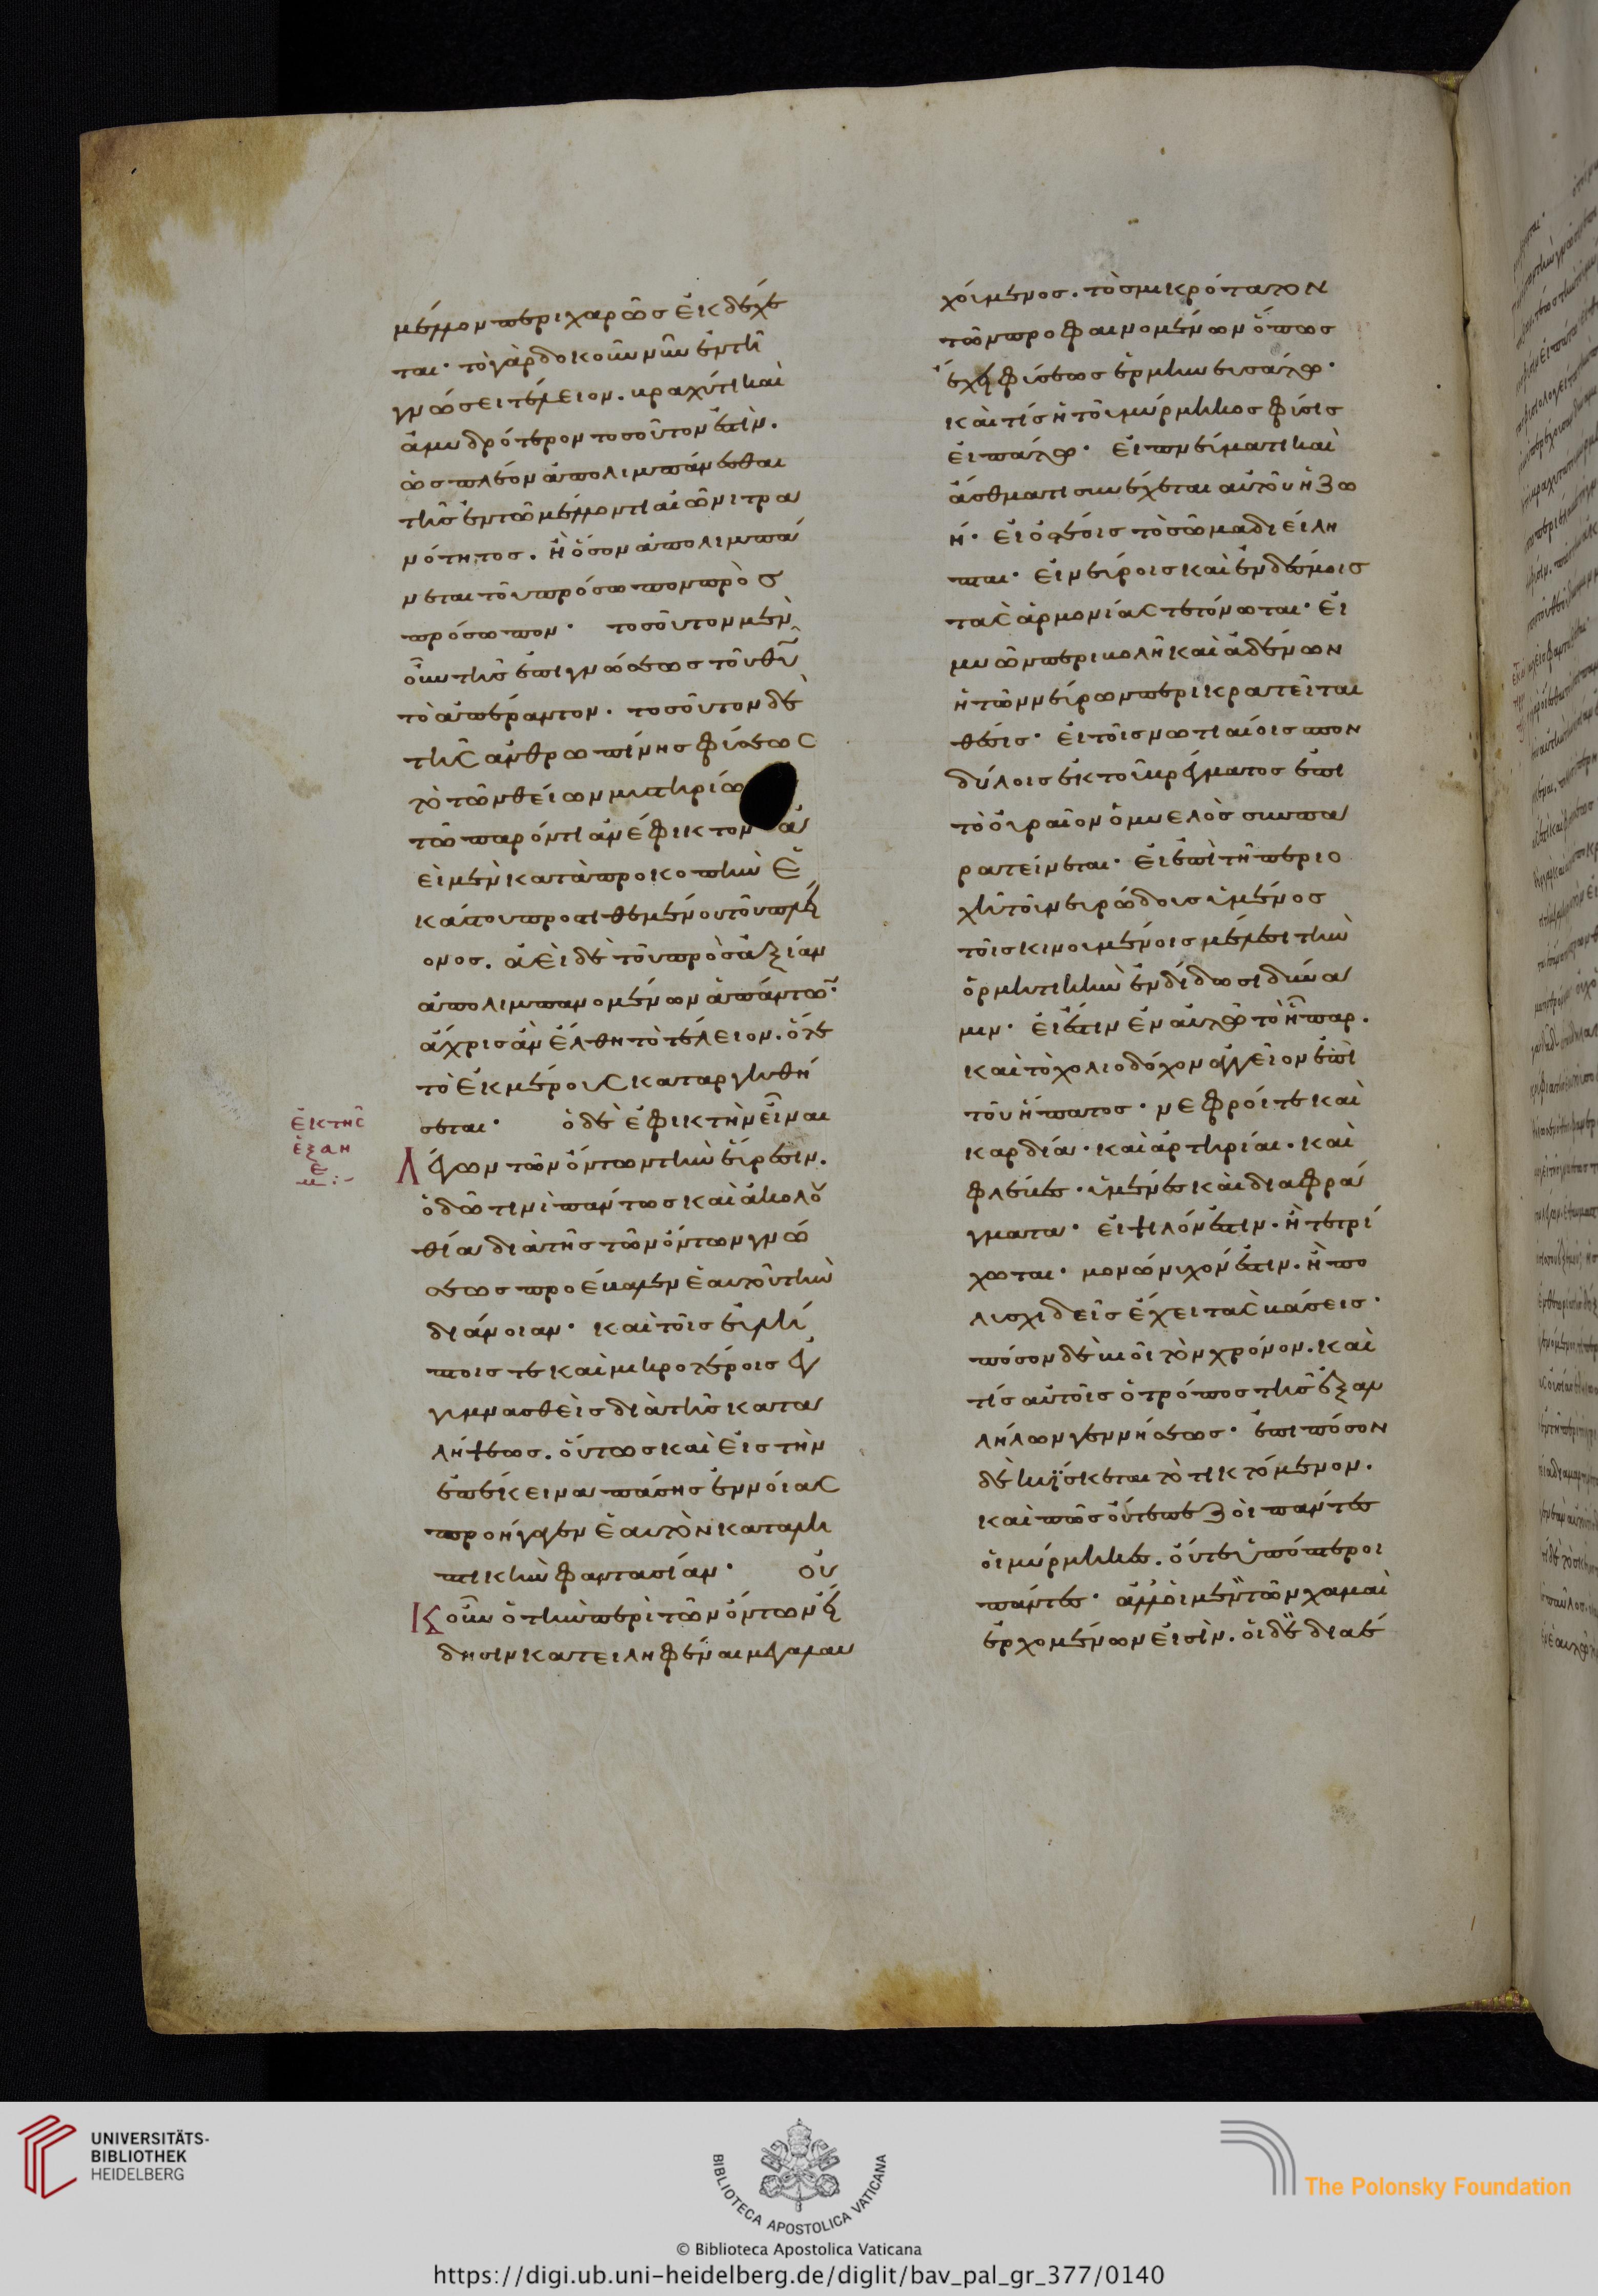 μέλλον περιχαρῶς ἐκδέχε
ται· τὸ γὰρ δοκοῦν νῦν ἐν τῆ
γνώσει τέλειον. βραχύ τι καὶ
ἀμυδρότερον τοσοῦτον ἐστὶν.
ὡς πλέον ἀπολιμπάνεσθαι
τῆς ἐν τῶ μέλλοντι αἰῶνι τρα
νότητος. ἢ ὅσον ἀπολιμπά
νεται τοῦ προσώπου πρὸς
πρόσωπον. τοσοῦτον μὲν
οὖν τῆς ἐπιγνώσεως τοῦ θυ
τὸ ἀπέραντον. τοσοῦτον δὲ
τῆς ἀνθρωπίνης φύσεως
τὸ τῶν θείων μυστηρίω
τῶ παρόντι ἀνέφικτον ἀ
εὶ μὲν κατὰ προκοπὴν ἑ
κάστου προστιθεμένου τοῦ πλέ
ονος. ἀεὶ δὲ τοῦ πρὸς ἀξίαν
ἀπολιμπανομένων ἁπάντω.
ἄχρις ἂν ἔλθη τὸ τέλειον. ὅτε
τὸ ἐκ μέρους καταργηθή
σεται. ὁ δὲ ἐφικτὴν εἶναι
ἐκ τῆς
ἐξαη
ε
μ :-
λέγων τῶν ὄντων τὴν εὕρεσιν.
ὁδῶ τινὶ πάντως καὶ ἀκολου
θία διὰ τῆς τῶν ὄντων γνώ
σεως προέβαλεν ἑαυτοῦ τὴν
διάνοιαν. καὶ τοῖς εὐλή
πτοις τε καὶ μικροτέροις ἐγ
γυμνασθεὶς διὰ τῆς κατα
λήψεως. οὕτως καὶ εἰς τὴν
ἐπέκεινα πάσης ἐννοίας
προήγαγεν ἑαυτὸν καταλη
πτικὴν φαντασίαν. οὐ
κοῦν ὁ τὴν περὶ τῶν ὄντων εἴ
δησιν κατειληφέναι μεγαλαυ
χούμενος. τὸ σμικρότατον
τῶν προφαινομένων ὅπως
ἔχει φύσεως ἑρμηνευσάτω.
καὶ τίς ἡ τοῦ μύρμηκος φύσις
εἰπάτω. εἰ πνεύματι καὶ
ἄσθματι συνέχεται αὐτοῦ ἡ ζω
ή. εἰ ὀστέοις τὸ σῶμα διείλη
πται. εἰ νεύροις καὶ ἐνδέσμοις
τὰς ἁρμονίας τετόνωται. εἰ
μυῶν περιβολῆ καὶ ἀδένων
ἡ τῶν νεύρων περικρατεῖται
θέσις. εἰ τοῖς νωτιαίοις πον
δύλοις ἐκ τοῦ βρέγματος ἐπὶ
τὸ οὐραῖον ὁ μυελὸς συμπα
ρατείνεται. εἰ ἐπὶ τῆ περιο
χῆ τοῦ νευρώδους ὑμένος
τοῖς κινουμένοις μέλεσι τὴν
ὁρμητικὴν ἐνδίδωσι δύνα
μιν. εἰ ἔστιν ἐν αὐτῶ τὸ ἧπαρ.
καὶ τὸ χοληοδόχον ἀγγεῖον ἐπὶ
τοῦ ἥπατος. νεφροί τε καὶ
καρδία. καὶ ἀρτηρίαι. καὶ
φλέβες. ὑμένες καὶ διαφρά
γματα. εἰ ψιλόν ἐστιν. ἢ τετρί
χωται. μονώνυχόν ἐστιν. ἢ πο
λυσχιδεῖς ἔχει τὰς βάσεις.
πόσον δὲ βιοῖ τὸν χρόνον. καὶ
τίς αὐτοῖς ὁ τρόπος τῆς ἐξ ἀλ
λήλων γεννήσεως. ἐπὶ πόσον
δὲ κυΐσκεται τὸ τικτόμενον.
καὶ πῶς οὔτε πεζοὶ πάντες
οἱ μύρμηκες. οὔτε ὑπόπτεροι
πάντες. ἀλλ' οἱ μὲν τῶν χαμαὶ
ἐρχομένων εἰσὶν. οἱ δὲ δι' ἀέ
UNIVERSITÄTS-
BIBLIOTHEK
HEIDELBERG
BIBLIOTECA APOSTOLICA VATICANA
The Polonsky Foundation
© Biblioteca Apostolica Vaticana
https://digi.ub.uni-heidelberg.de/diglit/bav_pal_gr_377/0140